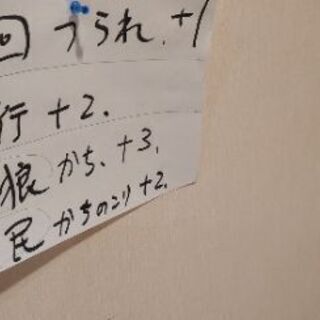 回 つられ.+1
行+2.
狼かち、+3.
民かちのこり+2.